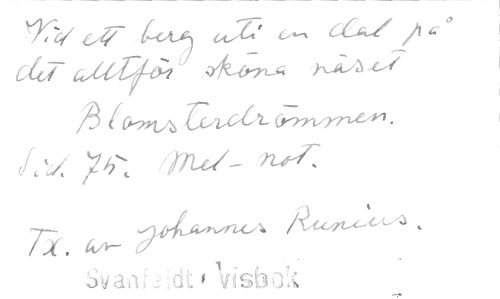 Vid ett berg uti en dal på
det alltför sköna näset
Blomsterdrömmen.
Sid. 75. Mel-not.
Tx. av Johannes Runius.
Svanfeldt, visbok